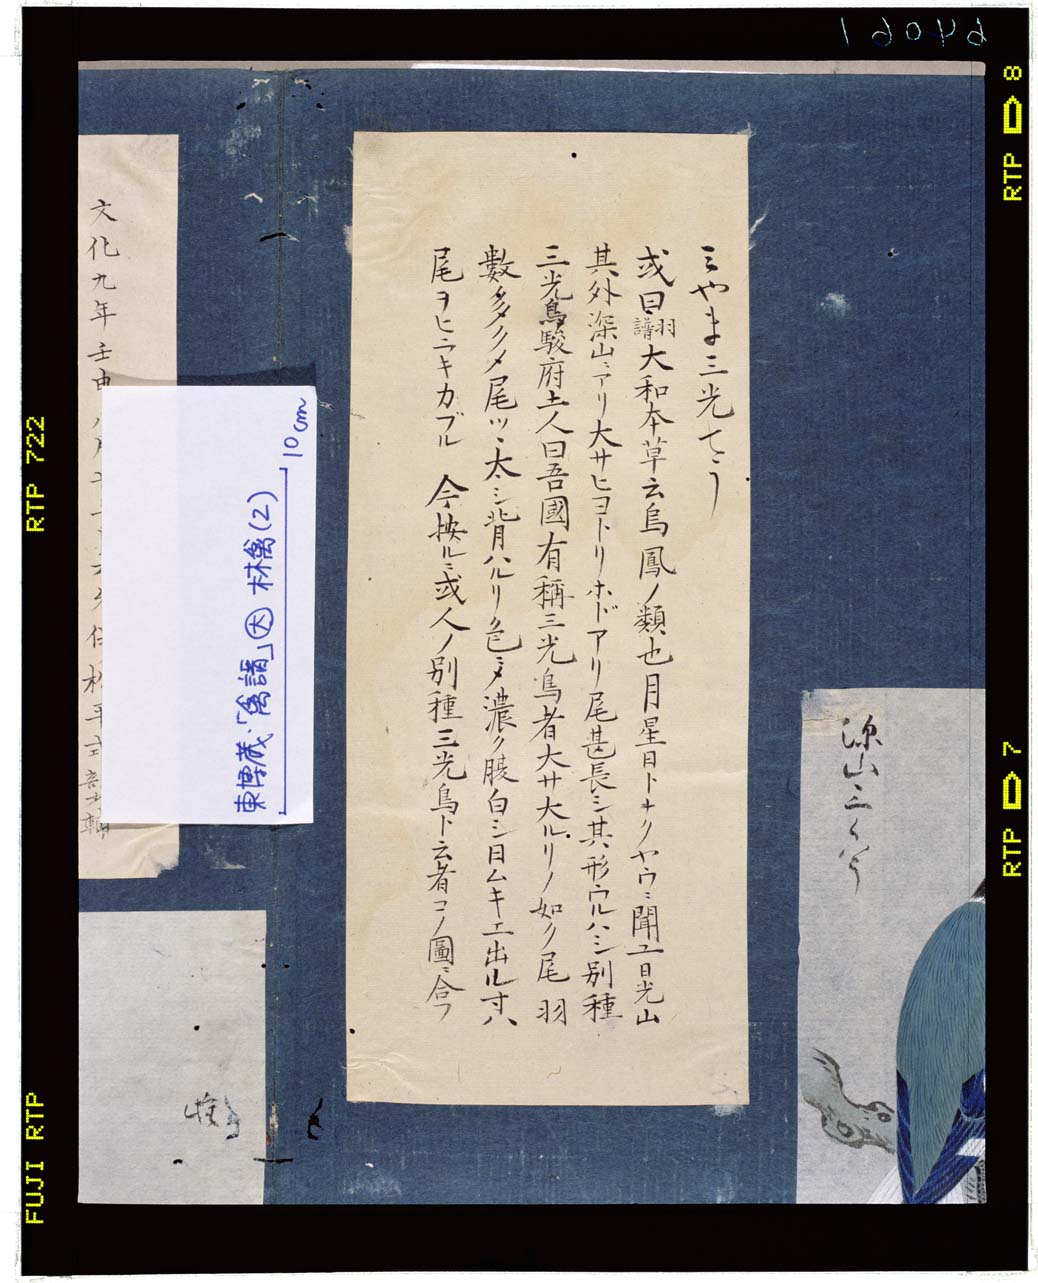 64061
RTP 8
RTP 7
深山三
みやま三光てう
或曰羽譜大和本草云烏鳳ノ類也月星日トナクヤウニ聞ユ日光山
其外深山ニアリ大サヒヨトリホドアリ尾甚長シ其形ウルハシ別種
三光鳥駿府土人曰吾國有稱三光鳥者大サ大ルリノ如ク尾羽
數多クメ尾ツヽ太シ背ハルリ色ニメ濃ク腹白シ日ムキエ出ル寸ハ
尾ヲヒラキカブル 今按ルニ或人ノ別種三光鳥ト云者コノ圖ニ合フ
文化九年壬申八月
松平
東博蔵「禽譜」因 林禽(2)
10cm
RTP 722
FUJI RTP